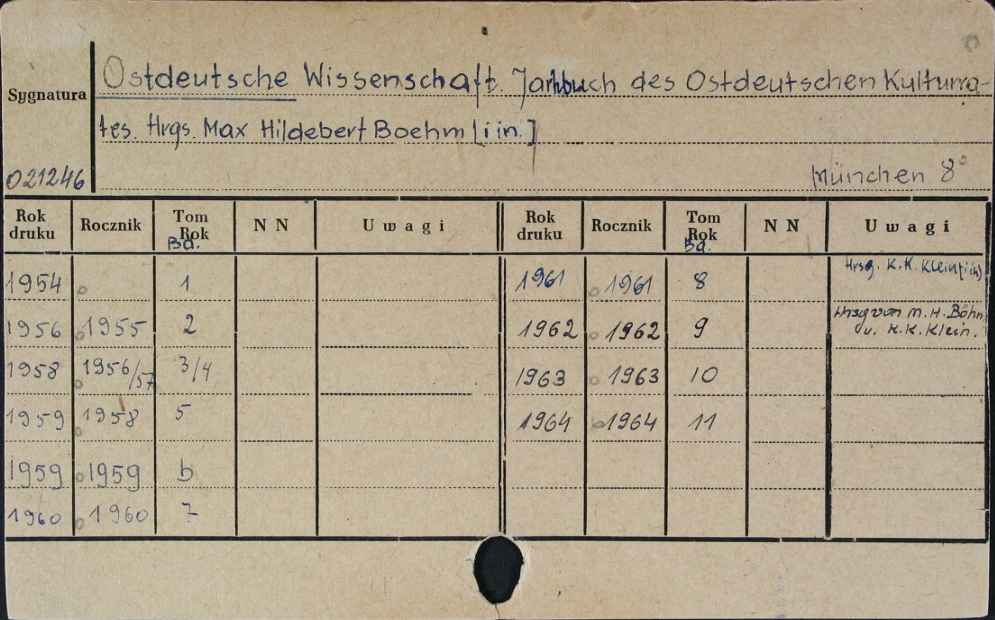 Sygnatura
Ostdeutsche Wissenschaft. Jahrbuch des Ostdeutschen Kulturra-
tes. Hrgs. Max Hildebert Boehm [i in.]
021246 München 8°
Rok druku Rocznik Tom Rok Bd. N N Uwagi Rok druku Rocznik Tom Rok Bd. N N Uwagi
1954 1 1961 1961 8 Hrsg. K.K. Klein [i in]
1956 1955 2 1962 1962 9 Hrsg von M. H. Böhm u. K.K. Klein.
1958 1956/57 3/4 1963 1963 10
1959 1958 5 1964 1964 11
1959 1959 b
1960 1960 7